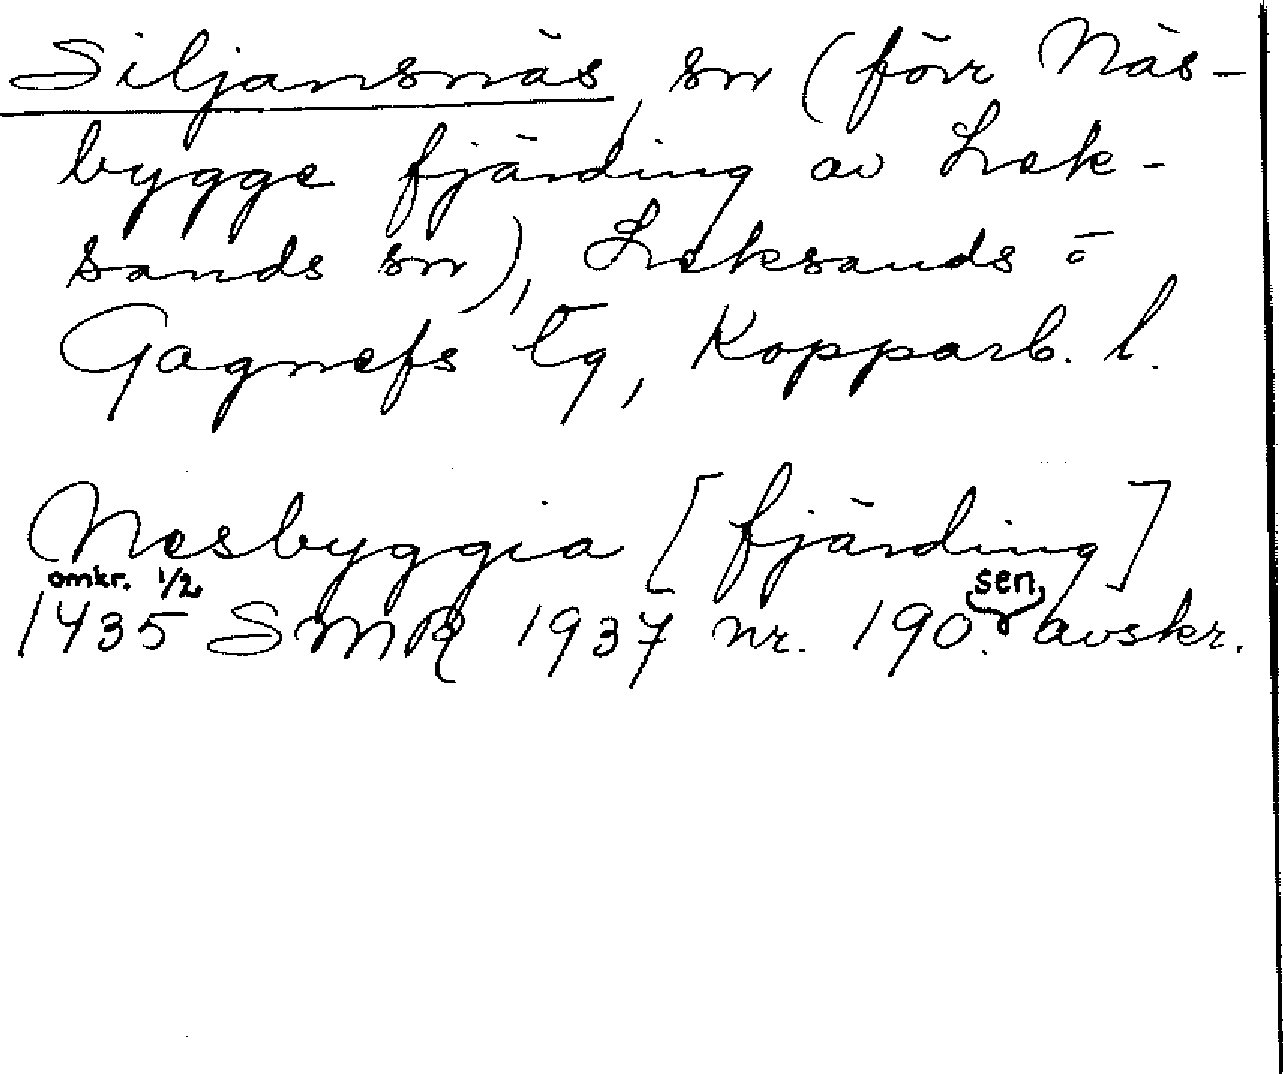 Siljansnäs, sn (förr Näs-
bygge fjärding av Lek-
sands sn), Leksands o
Gagnefs tg, Kopparb. l.
Nesbyggia [fjärding]
omkr. 1/2 sen.
1435 SMR 1937 nr. 190. avskr.